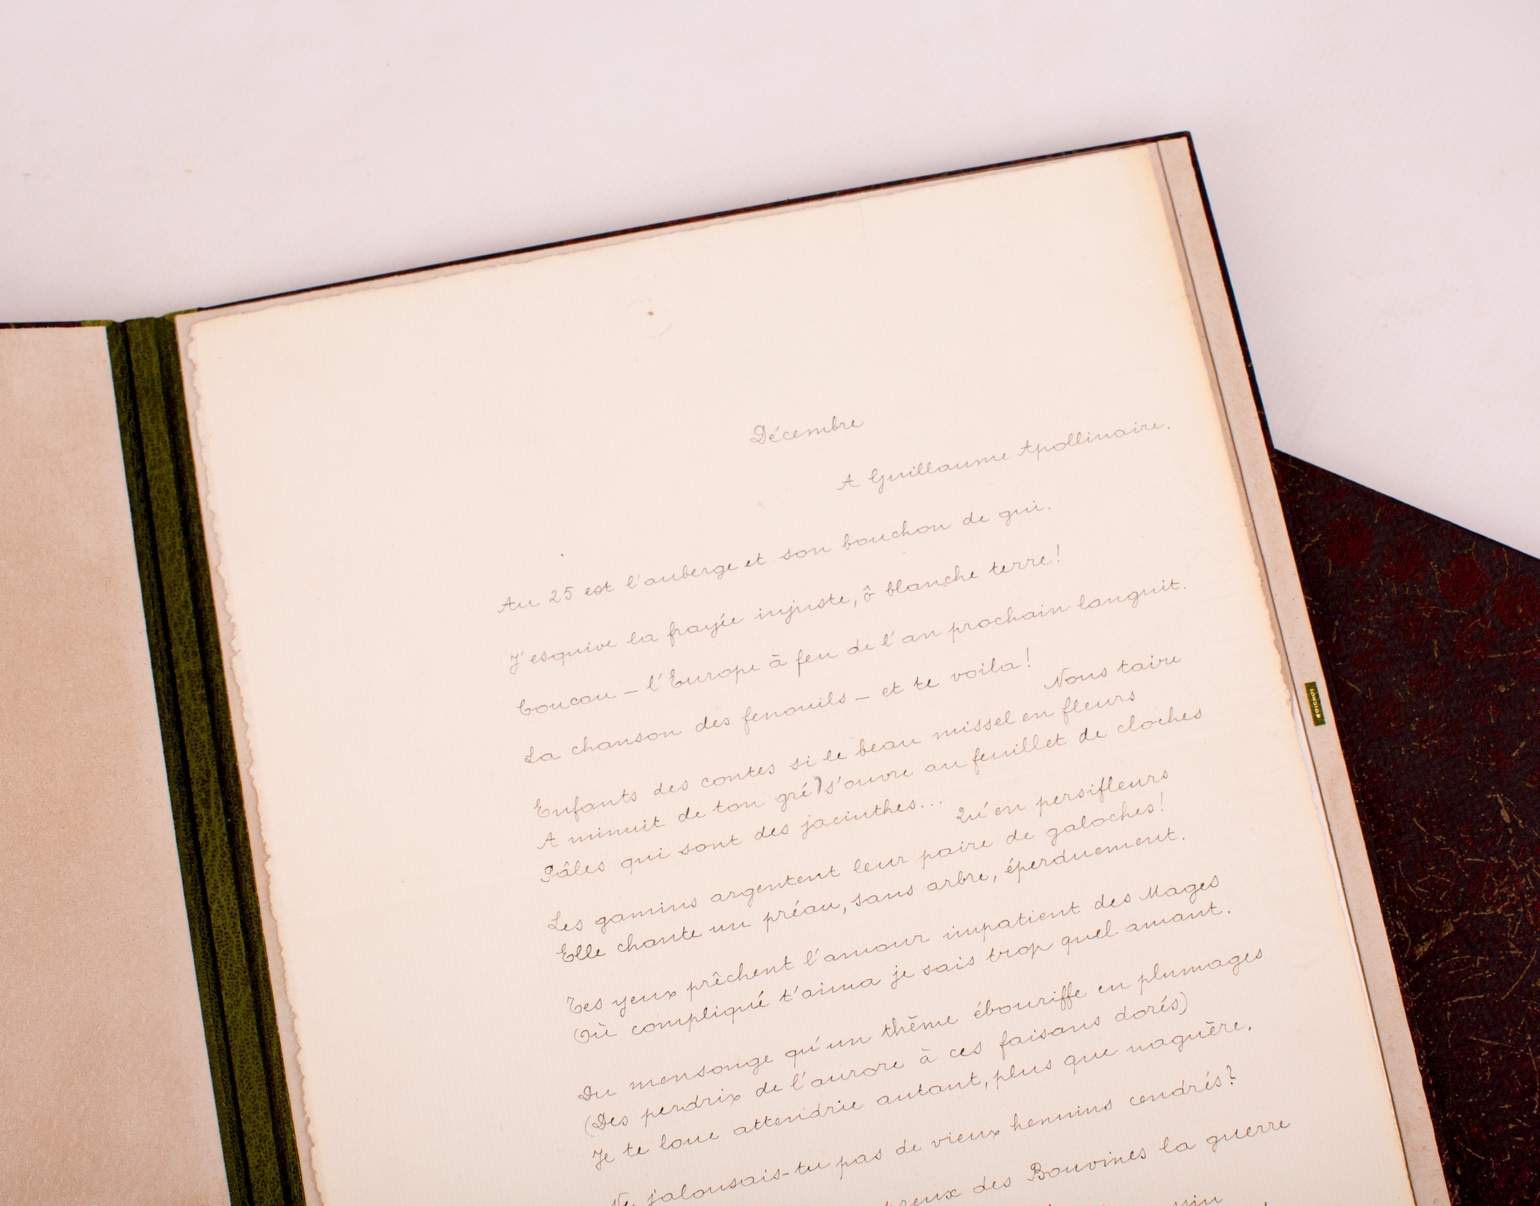 Décembre
A Guillaume Apollinaire.
Au 25 est l'auberge et son bouchon de gui.
J'esquive la frayée injuste, ô blanche terre!
Coucou — l'Europe à feu de l'an prochain languit.
La chanson des fenouils — et te voila!
Nous taire
Enfants des contes si le beau missel en fleurs
A minuit de ton gré) s'ouvre au feuillet de cloches
Pâles qui sont des jacinthes...
Qu'en persifleurs
Les gamins argentent leur paire de galoches!
Elle chante un préau, sans arbre, éperduement.
Tes yeux prêchent l'amour impatient des Mages
(Où compliqué t'aima je sais trop quel amant.
Du mensonge qu'un thème ébouriffe en plumages
(Des perdrix de l'aurore à ces faisans dorés)
Je te loue attendrie autant, plus que naguère.
Ne jalousais-tu pas de vieux hennins cendrés?
des Bouvines la guerre